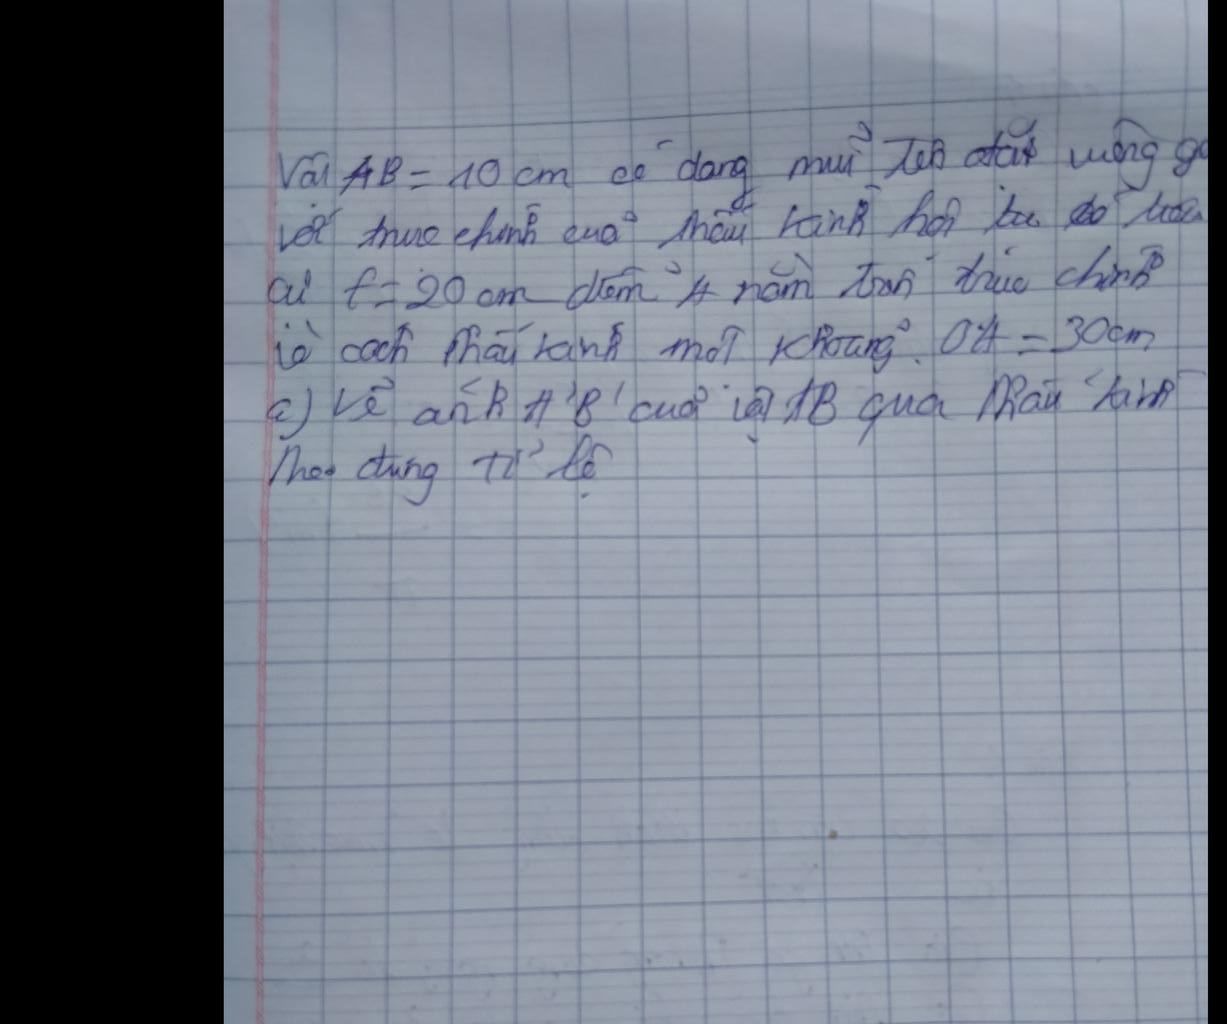 Vật AB = 10 cm có dạng mũi tên đặt vuông gó
với trục chính của thấu kính hội tụ có tiêu
cự f = 20 cm điểm A nằm trên trục chính
và cách thấu kính một khoảng OA = 30cm
a) Vẽ ảnh A'B' của vật AB qua thấu kính
theo đúng tỉ lệ